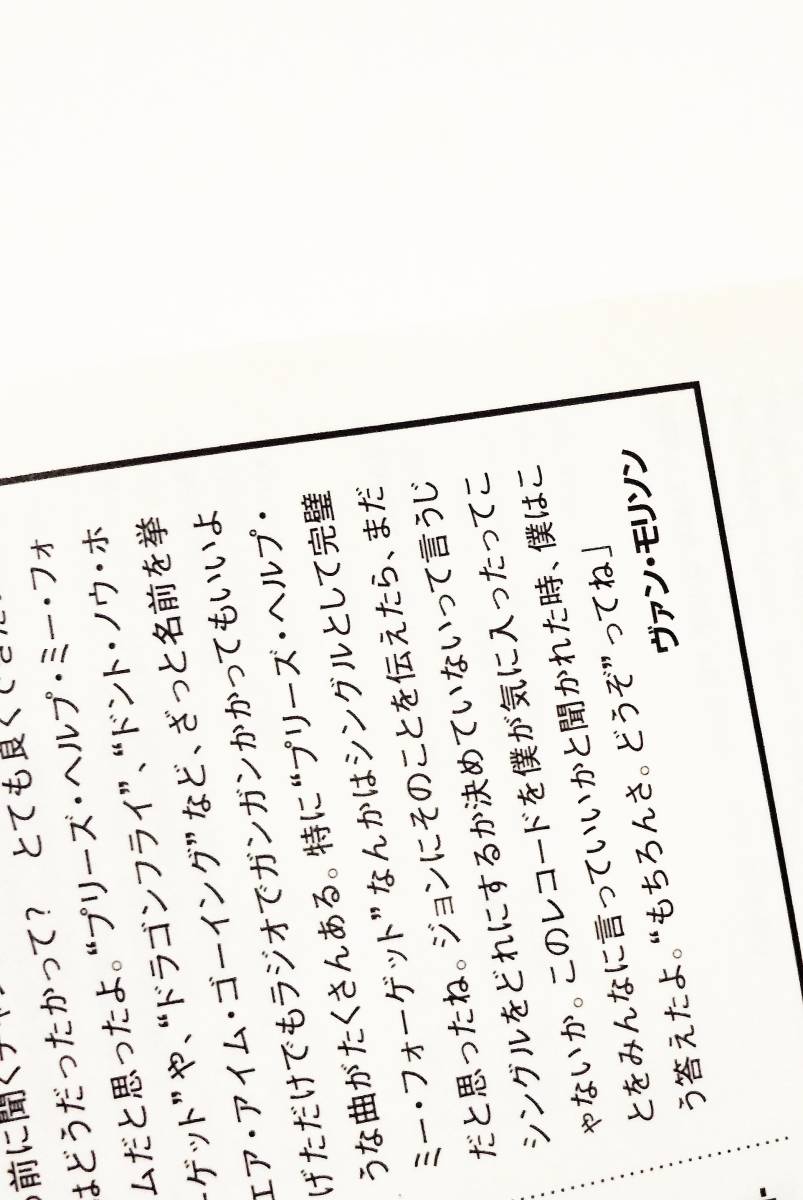 前に聞くチャン
はどうだったかって? とても良くできた
ムだと思ったよ。“プリーズ・ヘルプ・ミー・フォ
ーゲット”や、“ドラゴンフライ”、“ドント・ノウ・ホ
エア・アイム・ゴーイング”など、ざっと名前を挙
げただけでもラジオでガンガンかかってもいいよ
うな曲がたくさんある。特に“プリーズ・ヘルプ・
ミー・フォーゲット”なんかはシングルとして完璧
だと思ったね。ジョンにそのことを伝えたら、まだ
シングルをどれにするか決めていないって言うじ
ゃないか。このレコードを僕が気に入ったってこ
とをみんなに言っていいかと聞かれた時、僕はこ
う答えたよ。“もちろんさ。どうぞ”ってね」
ヴァン・モリソン